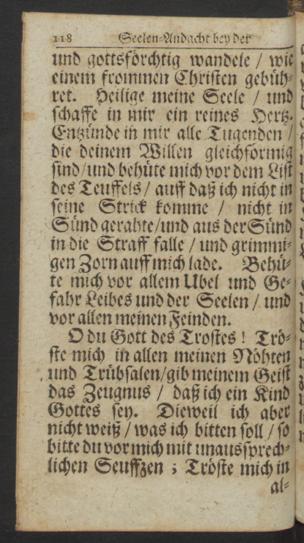 118 Seelen-Andacht bey der
und gottsförchtig wandele / wie
einem frommen Christen gebüh-
ret. Heilige meine Seele / und
schaffe in mir ein reines Hertz.
Entzünde in mir alle Tugenden /
die deinem Willen gleichförmig
sind / und behüte mich vor dem List
des Teuffels / auff daß ich nicht in
seine Strick komme / nicht in
Sünd gerahte / und aus der Sünd
in die Straff falle / und grimmi-
gen Zorn auff mich lade. Behü-
te mich vor allem Ubel und Ge-
fahr Leibes und der Seelen / und
vor allen meinen Feinden.
O du Gott des Trostes! Trö-
ste mich in allen meinen Nöhten
und Trübsalen / gib meinem Geist
das Zeugnus / daß ich ein Kind
Gottes sey. Dieweil ich aber
nicht weiß / was ich bitten soll / so
bitte du vor mich mit unaussprech-
lichen Seuffzen ; Tröste mich in
al-